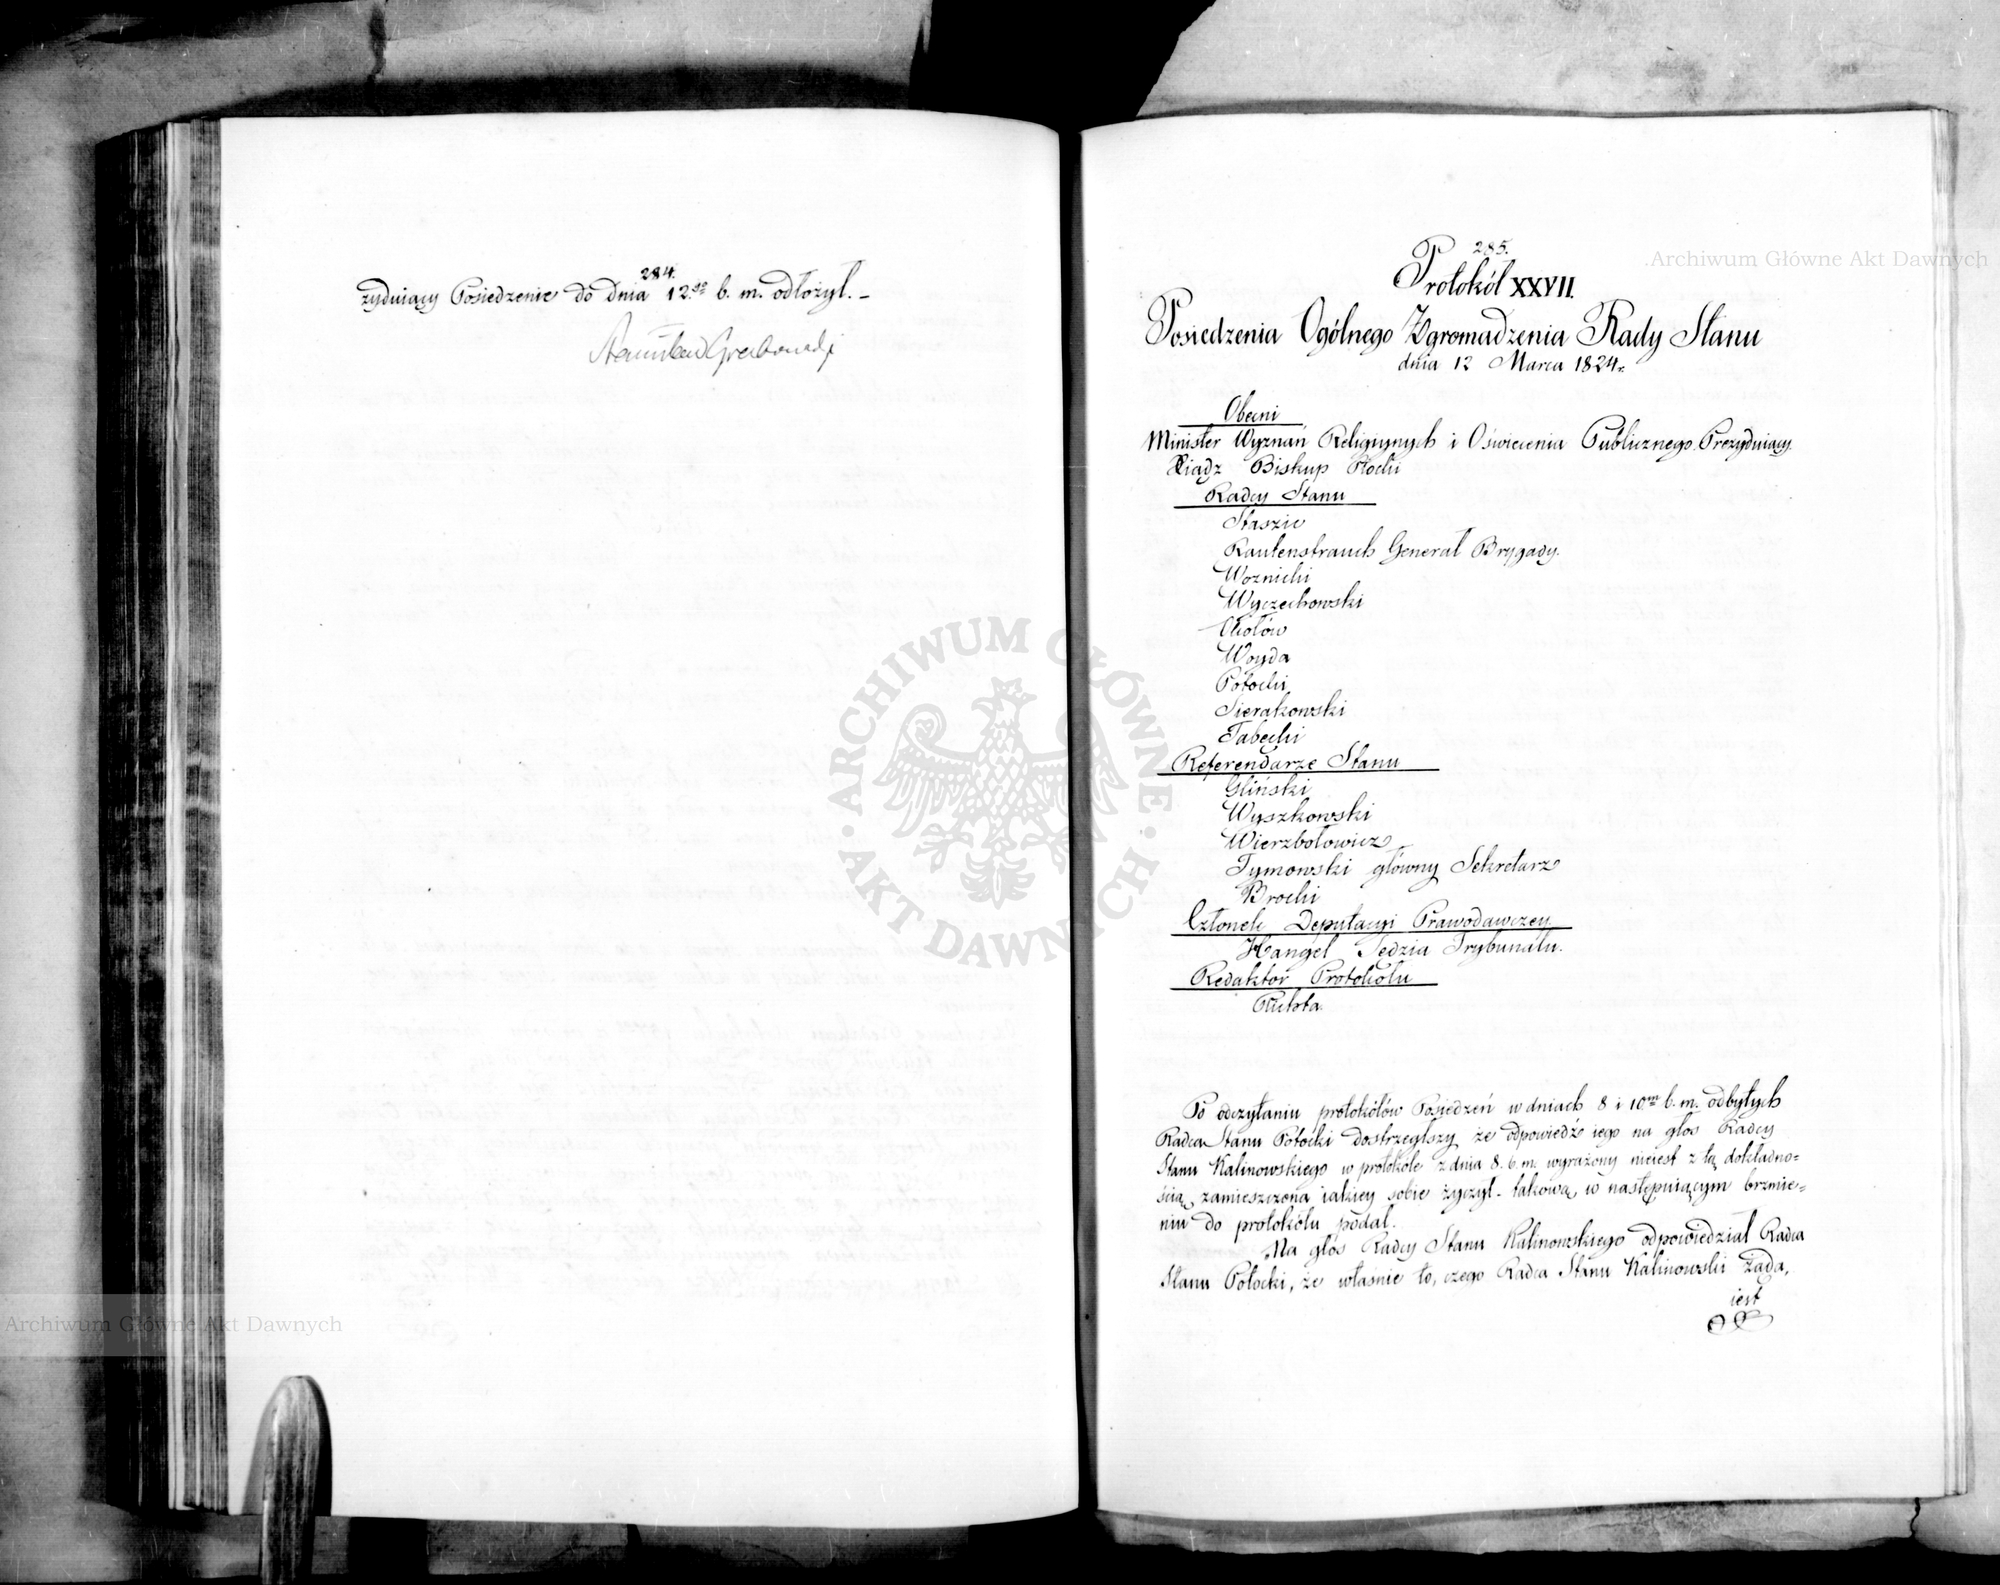 284.
zyduiący Posiedzenie do dnia 12.go b. m. odłożył. –
285.
Protokół XXVII.
Posiedzenia Ogólnego Zgromadzenia Rady Stanu
dnia 12 Marca 1824.
Obecni
Minister Wyznań Religiynych i Oświecenia Publicznego Prezyduiący.
Xiądz Biskup Płocki
Radcy Stanu
Staszic
Rautenstrauch Generał Brygady.
Woznicki
Wyczechowski
Okołów
Woyda
Potocki
Sierakowski
Tabęcki
Referendarze Stanu
Gliński
Wyszkowski
Wierzbołowicz
Tymowski główny Sekretarz
Brocki
Członek Deputacyi Prawodawczey
Hangel Sędzia Trybunału.
Redaktor Protokółu
Puchta
Po odczytaniu protokółów Posiedzeń w dniach 8 i 10.m b. m. odbytych
Radca Stanu Potocki dostrzegłszy że odpowiedź iego na głos Radcy
Stanu Kalinowskiego w protokóle z dnia 8. b. m. wyrażony nieiest z tą dokładno=
ścią zamieszczona iakiey sobie życzył. takową w następuiącym brzmie=
niu do protokółu podał.
Na głos Radcy Stanu Kalinowskiego odpowiedział Radca
Stanu Potocki, że właśnie to, czego Radca Stanu Kalinowski żąda,
iest
Archiwum Główne Akt Dawnych
Archiwum Główne Akt Dawnych
ARCHIWUM GŁÓWNE AKT DAWNYCH